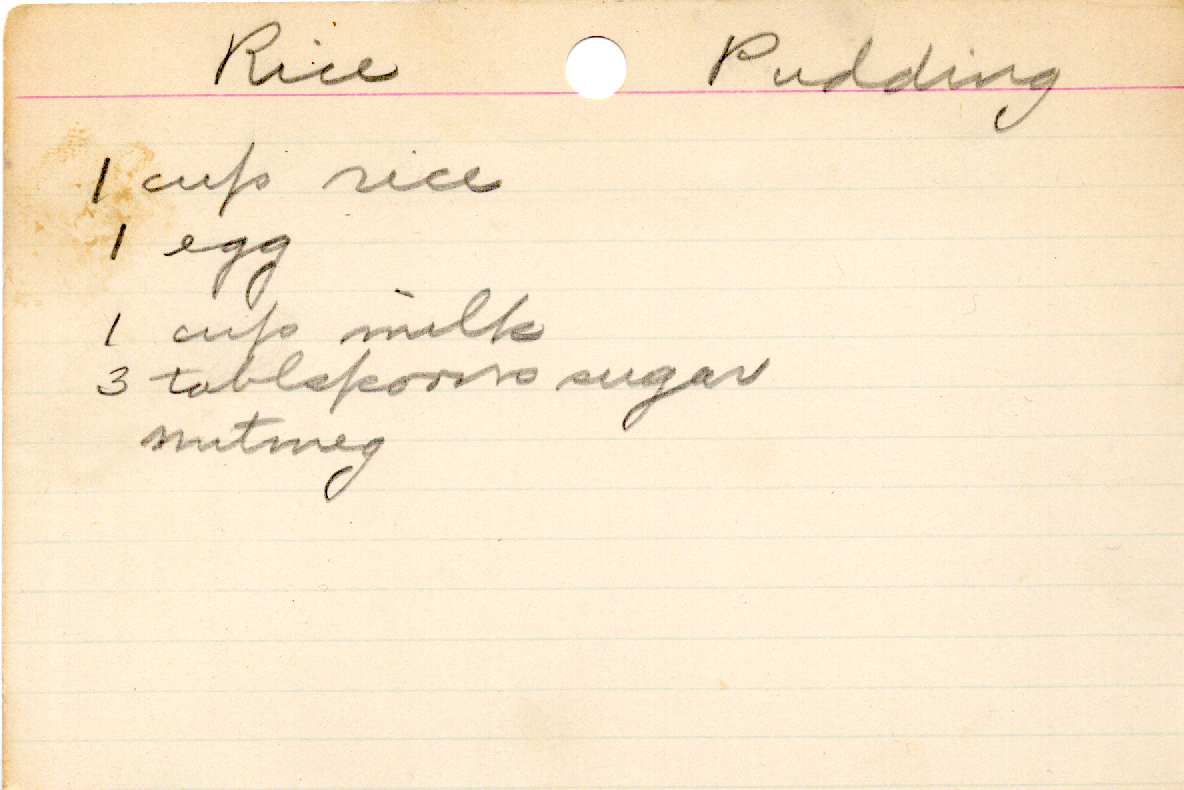 Rice Pudding
1 cup rice
1 egg
1 cup milk
3 tablspoons sugar
nutmeg